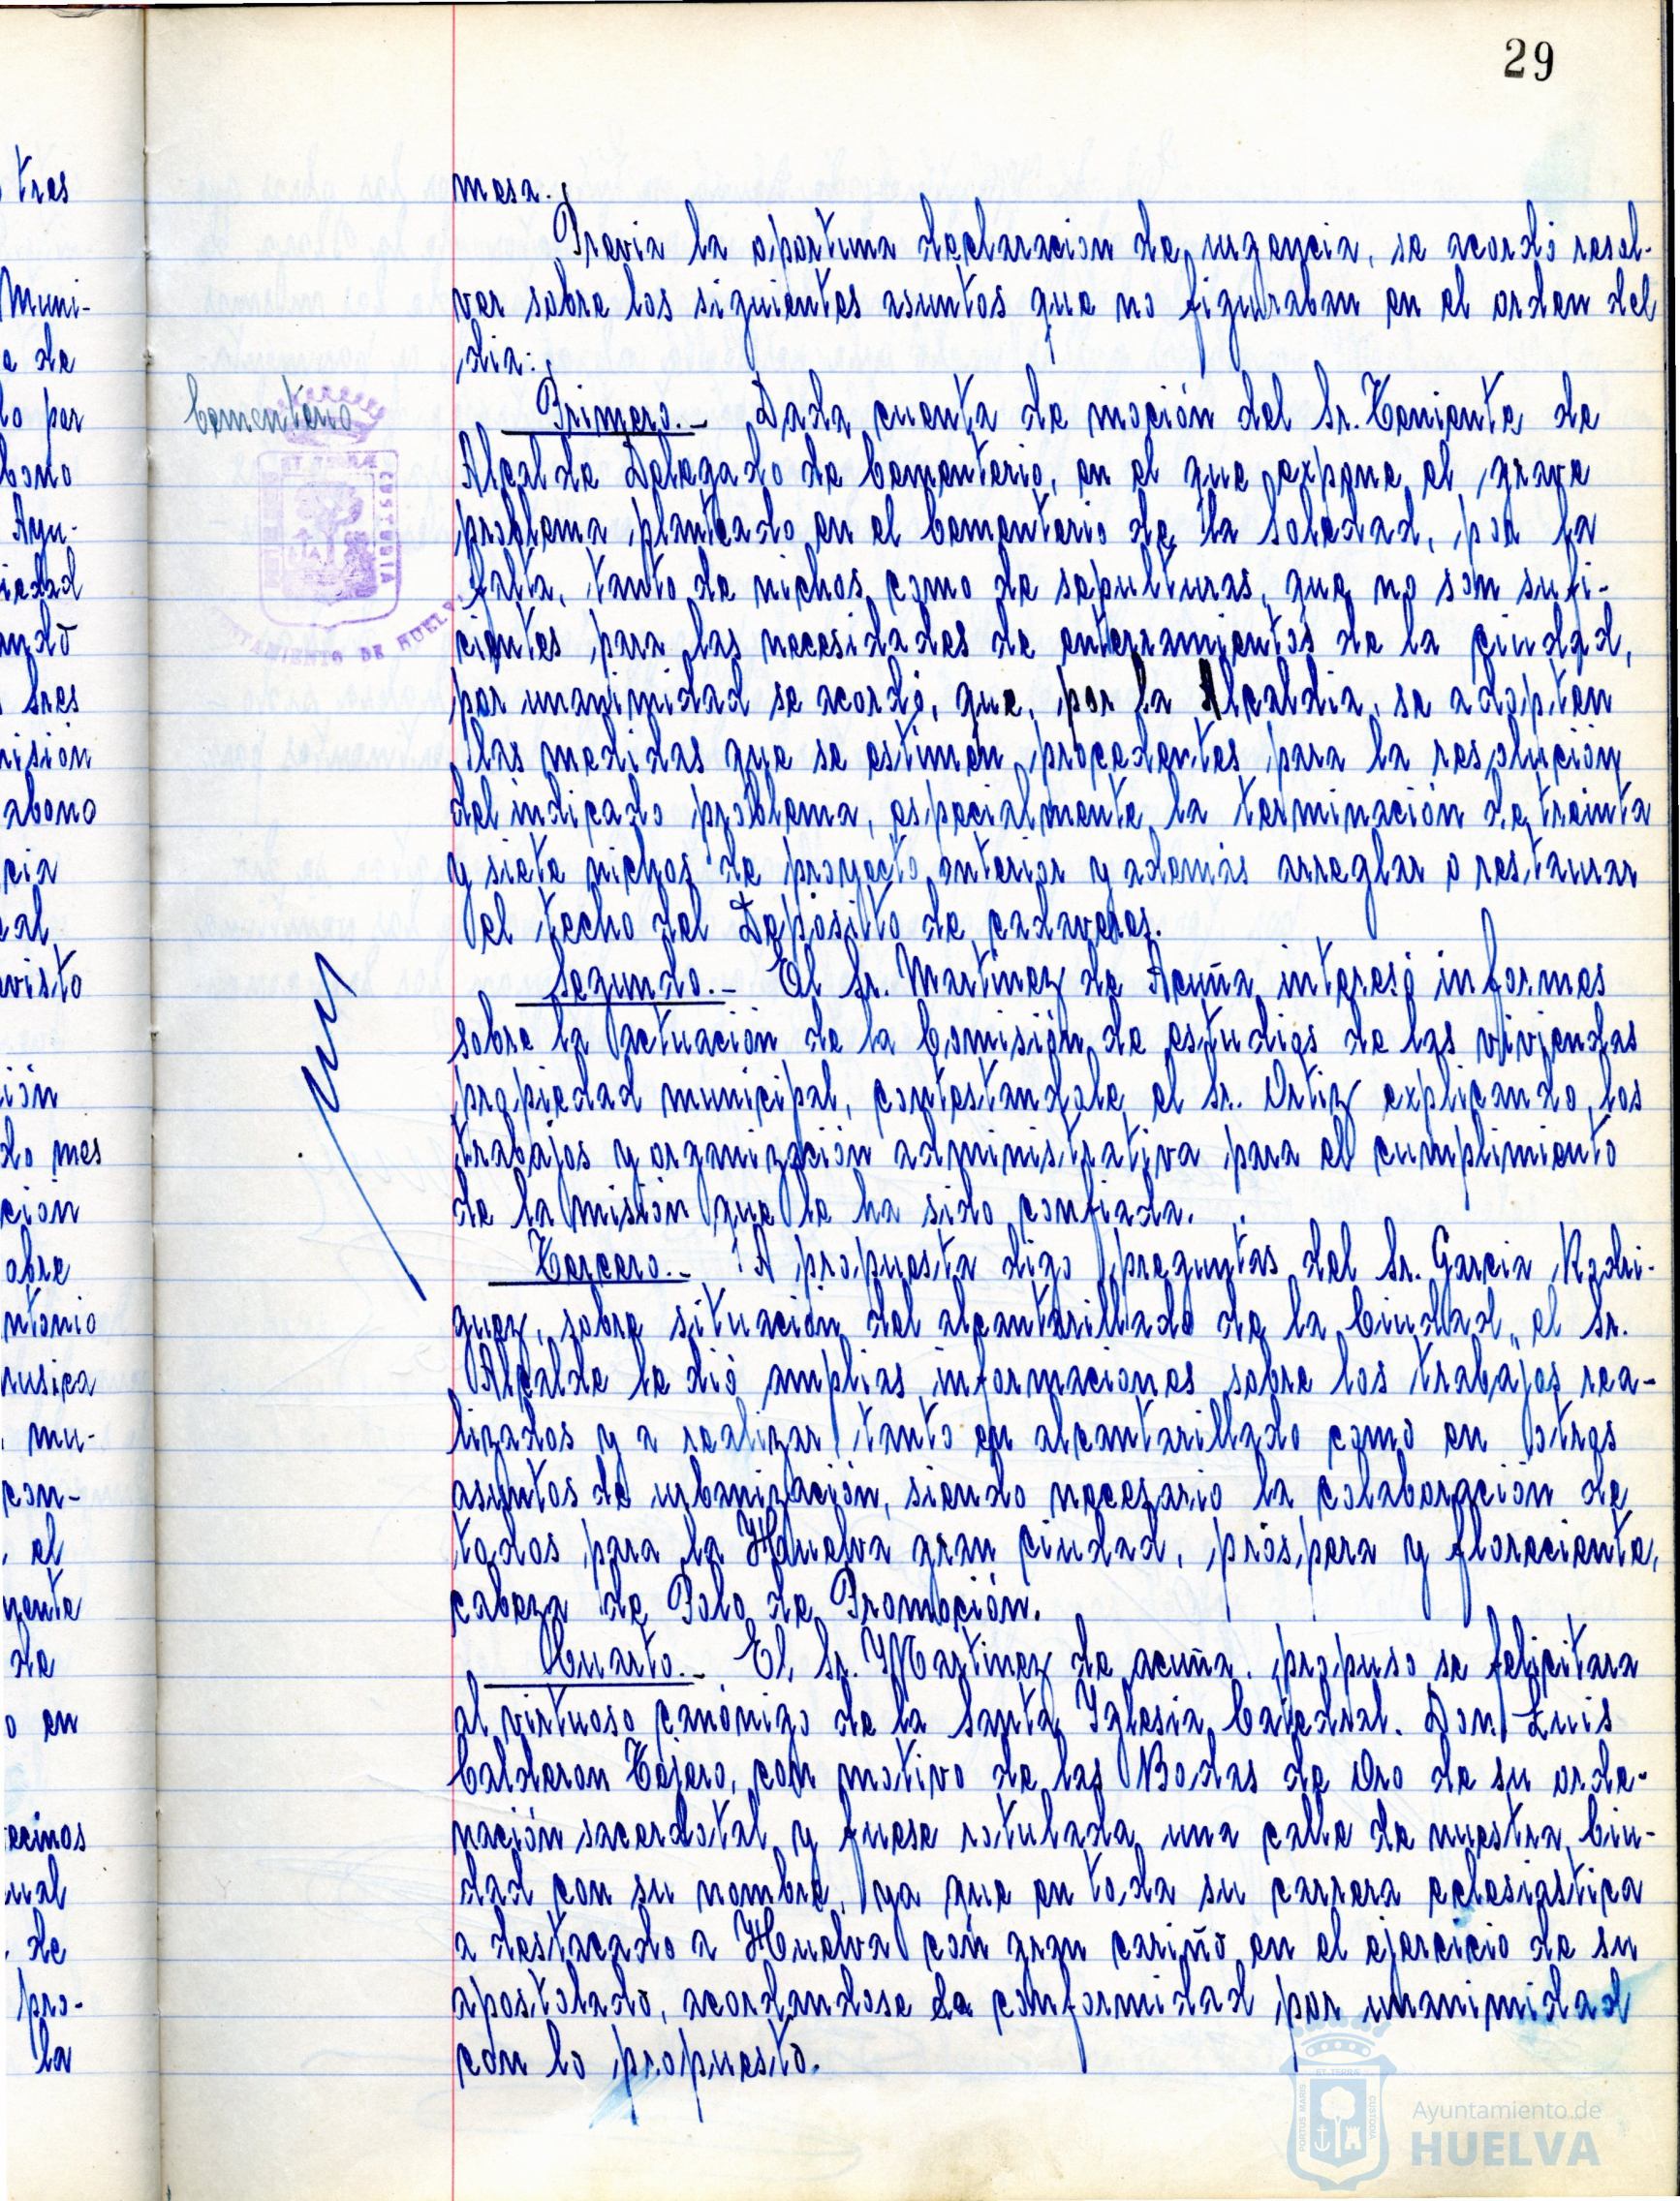 29
tres
Muni-
e de
lo por
bono
Ayu-
iedad
ando
Sres
misión
abono
cia
al
visto
ión
do mes
ción
obre
ntonio
musica
mu-
con-
, el
mente
de
o en
ecinos
ual
. de
pro-
la
Cementerio
ET TERRA
CUSTODIA
AYUNTAMIENTO DE HUELVA
mesa.
Previa la oportuna declaracion de urgencia, se acordó resol-
ver sobre los siguientes asuntos que no figuraban en el orden del
dia:
Primero.- Dada cuenta de moción del Sr. Teniente de
Alcalde Delegado de Cementerio, en el que expone el grave
problema planteado en el Cementerio de la Soledad, por la
falta, tanto de nichos como de sepulturas, que no son sufi-
cientes para las necesidades de enterramientos de la ciudad,
por unanimidad se acordó, que, por la Alcaldia, se adopten
las medidas que se estimen procedentes para la resolución
del indicado problema, especialmente la terminación de treinta
y siete nichos de proyecto anterior y además arreglar o restaurar
el techo del Deposito de cadaveres.
Segundo.- El Sr. Martinez de Acuña interesó informes
sobre la actuación de la Comisión de estudios de las viviendas
propiedad municipal, contestandole el Sr. Ortiz explicando los
trabajos y organización administrativa para el cumplimiento
de la misión que le ha sido confiada.
Tercero.- A propuesta digo preguntas del Sr. Garcia Rodri-
guez, sobre situación del alcantarillado de la Ciudad, el Sr.
Alcalde le dió amplias informaciones sobre los trabajos rea-
lizados y a realizar tanto en alcantarillado como en otros
asuntos de urbanización, siendo necesario la colaboración de
todos para la Huelva gran ciudad, próspera y floreciente,
cabeza de Polo de Promoción.
Cuarto.- El Sr. Martinez de acuña. propuso se felicitara
al virtuoso canónigo de la Santa Iglesia Catedral. Don Luis
Calderon Tejero, con motivo de las Bodas de Oro de su orde-
nación sacerdotal y fuese rotulada una calle de nuestra Ciu-
dad con su nombre, ya que en toda su carrera eclesiastica
a destacado a Huelva con gran cariño en el ejercicio de su
apostolado, acordandose la conformidad por unanimidad
con lo propuesto.
PORTUS MARIS
ET TERRAE
CUSTODIA
Ayuntamiento de
HUELVA